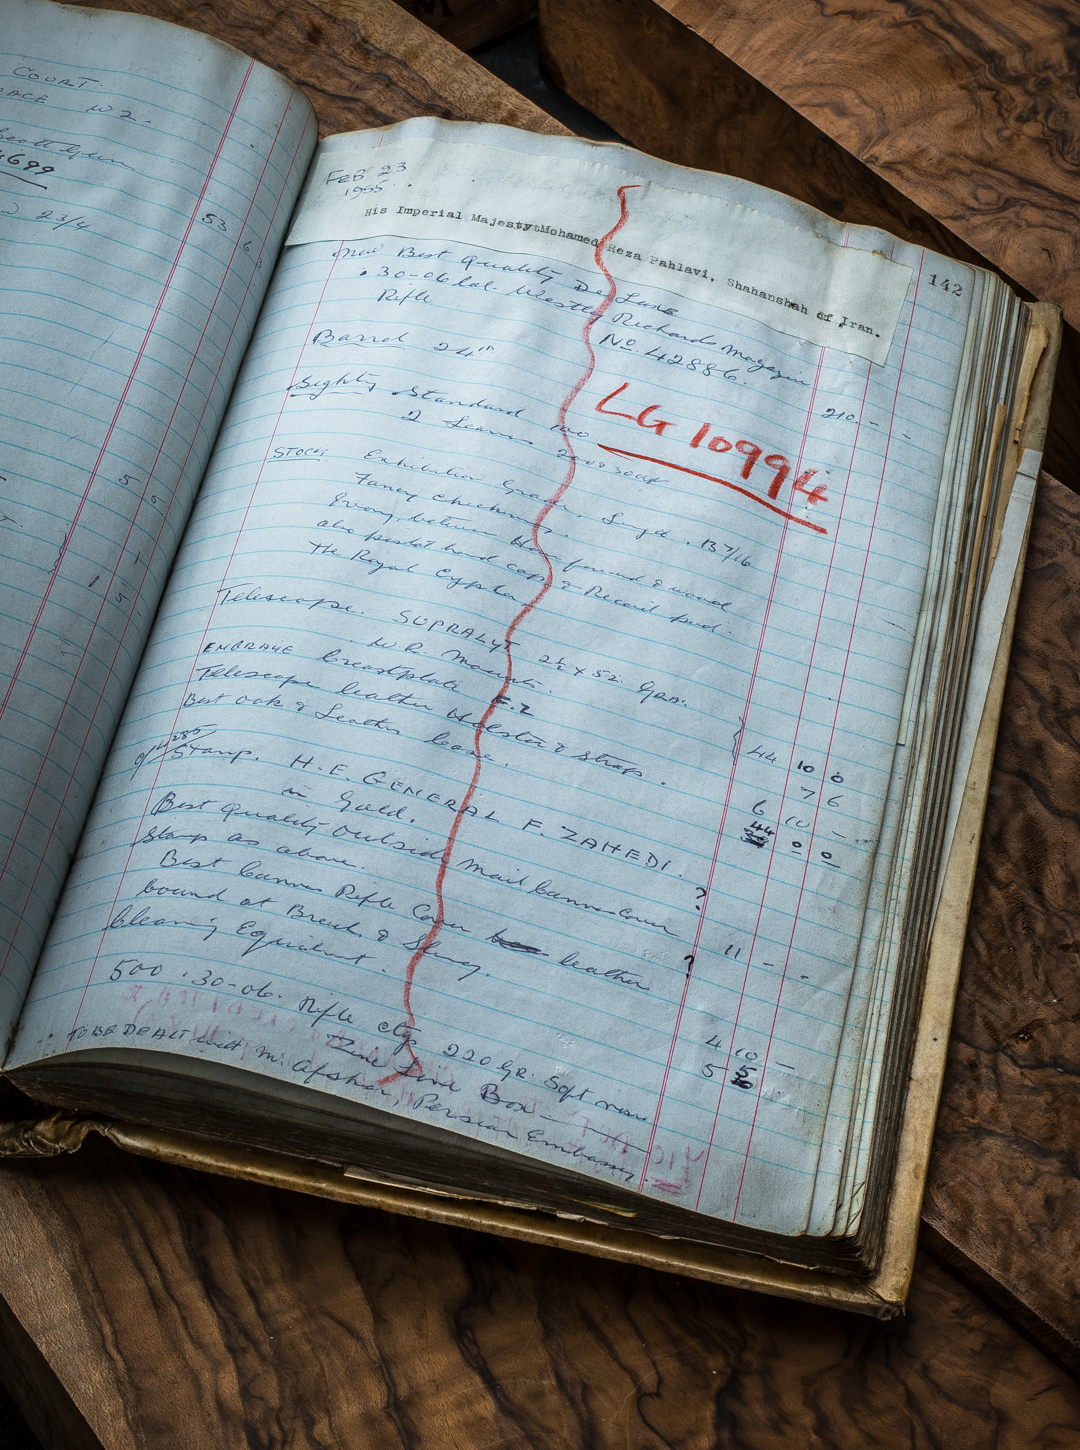 COURT.
W2.
4699
23/4
53 6
5 5
1
1 5
Feb 23
1955.
142
His Imperial MajestytMohamed Reza Pahlavi, Shahanshah of Iran.
New Best Quality De Luxe
.30-06 Cal. Westley Richard Magazin
Rifle No. 42886.
210 - -
Barrel 24in
LG 10994
Sights Standard 100
2 Leaves 200 & 300 yds
STOCK Exhibition Grade. Length. 13 7/16
Fancy chequering.
Ivory between foreend & wood
also pistol hand cap & Recoil pad.
The Royal Cypher
Telescope. SUPRALYT 2½ x 52. GRA:
W.R. Mounts.
44 10 0
ENGRAVE breastplate F.Z
7 6
Telescope leather Holster & strap.
6 10 -
Best oak & Leather case.
44 0 0
Stamp. H.E. GENERAL F. ZAHEDI.
in Gold.
Best Quality outside Mail Canvas Cover ?
11 - -
Stamp as above.
Best Canvas Rifle Cover leather ?
bound at Breech & Sling.
4 10 -
Cleaning Equipment.
5
500 .30-06. Rifle ctgs 220 GR. Soft nose
Zinc Line Box -
TO BE DEALT with M. Afshar, Persian Embassy.